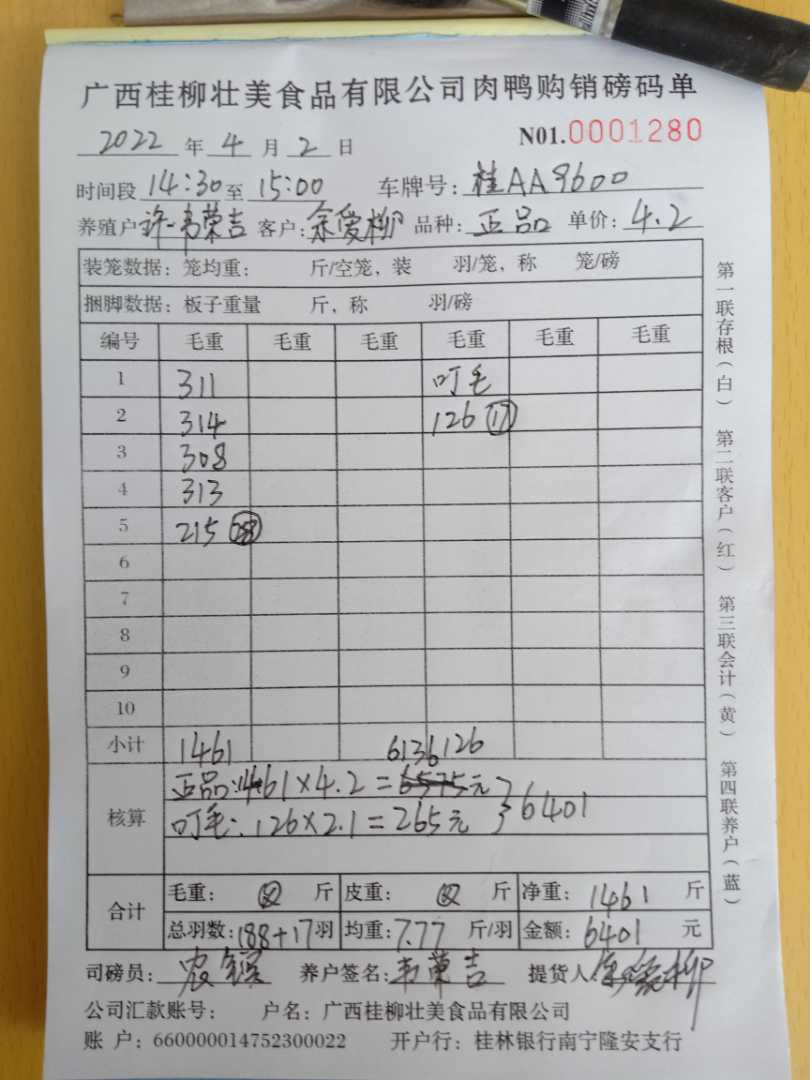 广西桂柳壮美食品有限公司肉鸭购销磅码单
2022年4月2日 N01.0001280
时间段14:30至15:00 车牌号:桂AA9600
养殖户许-韦荣吉 客户:余爱柳 品种:正品 单价:4.2
装笼数据:笼均重: 斤/空笼、装 羽/笼、称 笼/磅
捆脚数据:板子重量 斤、称 羽/磅
编号 毛重 毛重 毛重 毛重 毛重 毛重
1 311 叮毛
2 314 126 17
3 308
4 313
5 215
6
7
8
9
10
小计 1461 6136 126
核算 正品:1461×4.2=6575元
叮毛:126×2.1=265元 6401
合计 毛重: 斤 皮重: 斤 净重:1461斤
总羽数:188+17羽 均重:7.77斤/羽 金额:6401元
司磅员:农镔 养户签名:韦荣吉 提货人余爱柳
公司汇款账号: 户名:广西桂柳壮美食品有限公司
账 户:660000014752300022 开户行:桂林银行南宁隆安支行
第一联存根(白) 第二联客户(红) 第三联会计(黄) 第四联养户(蓝)